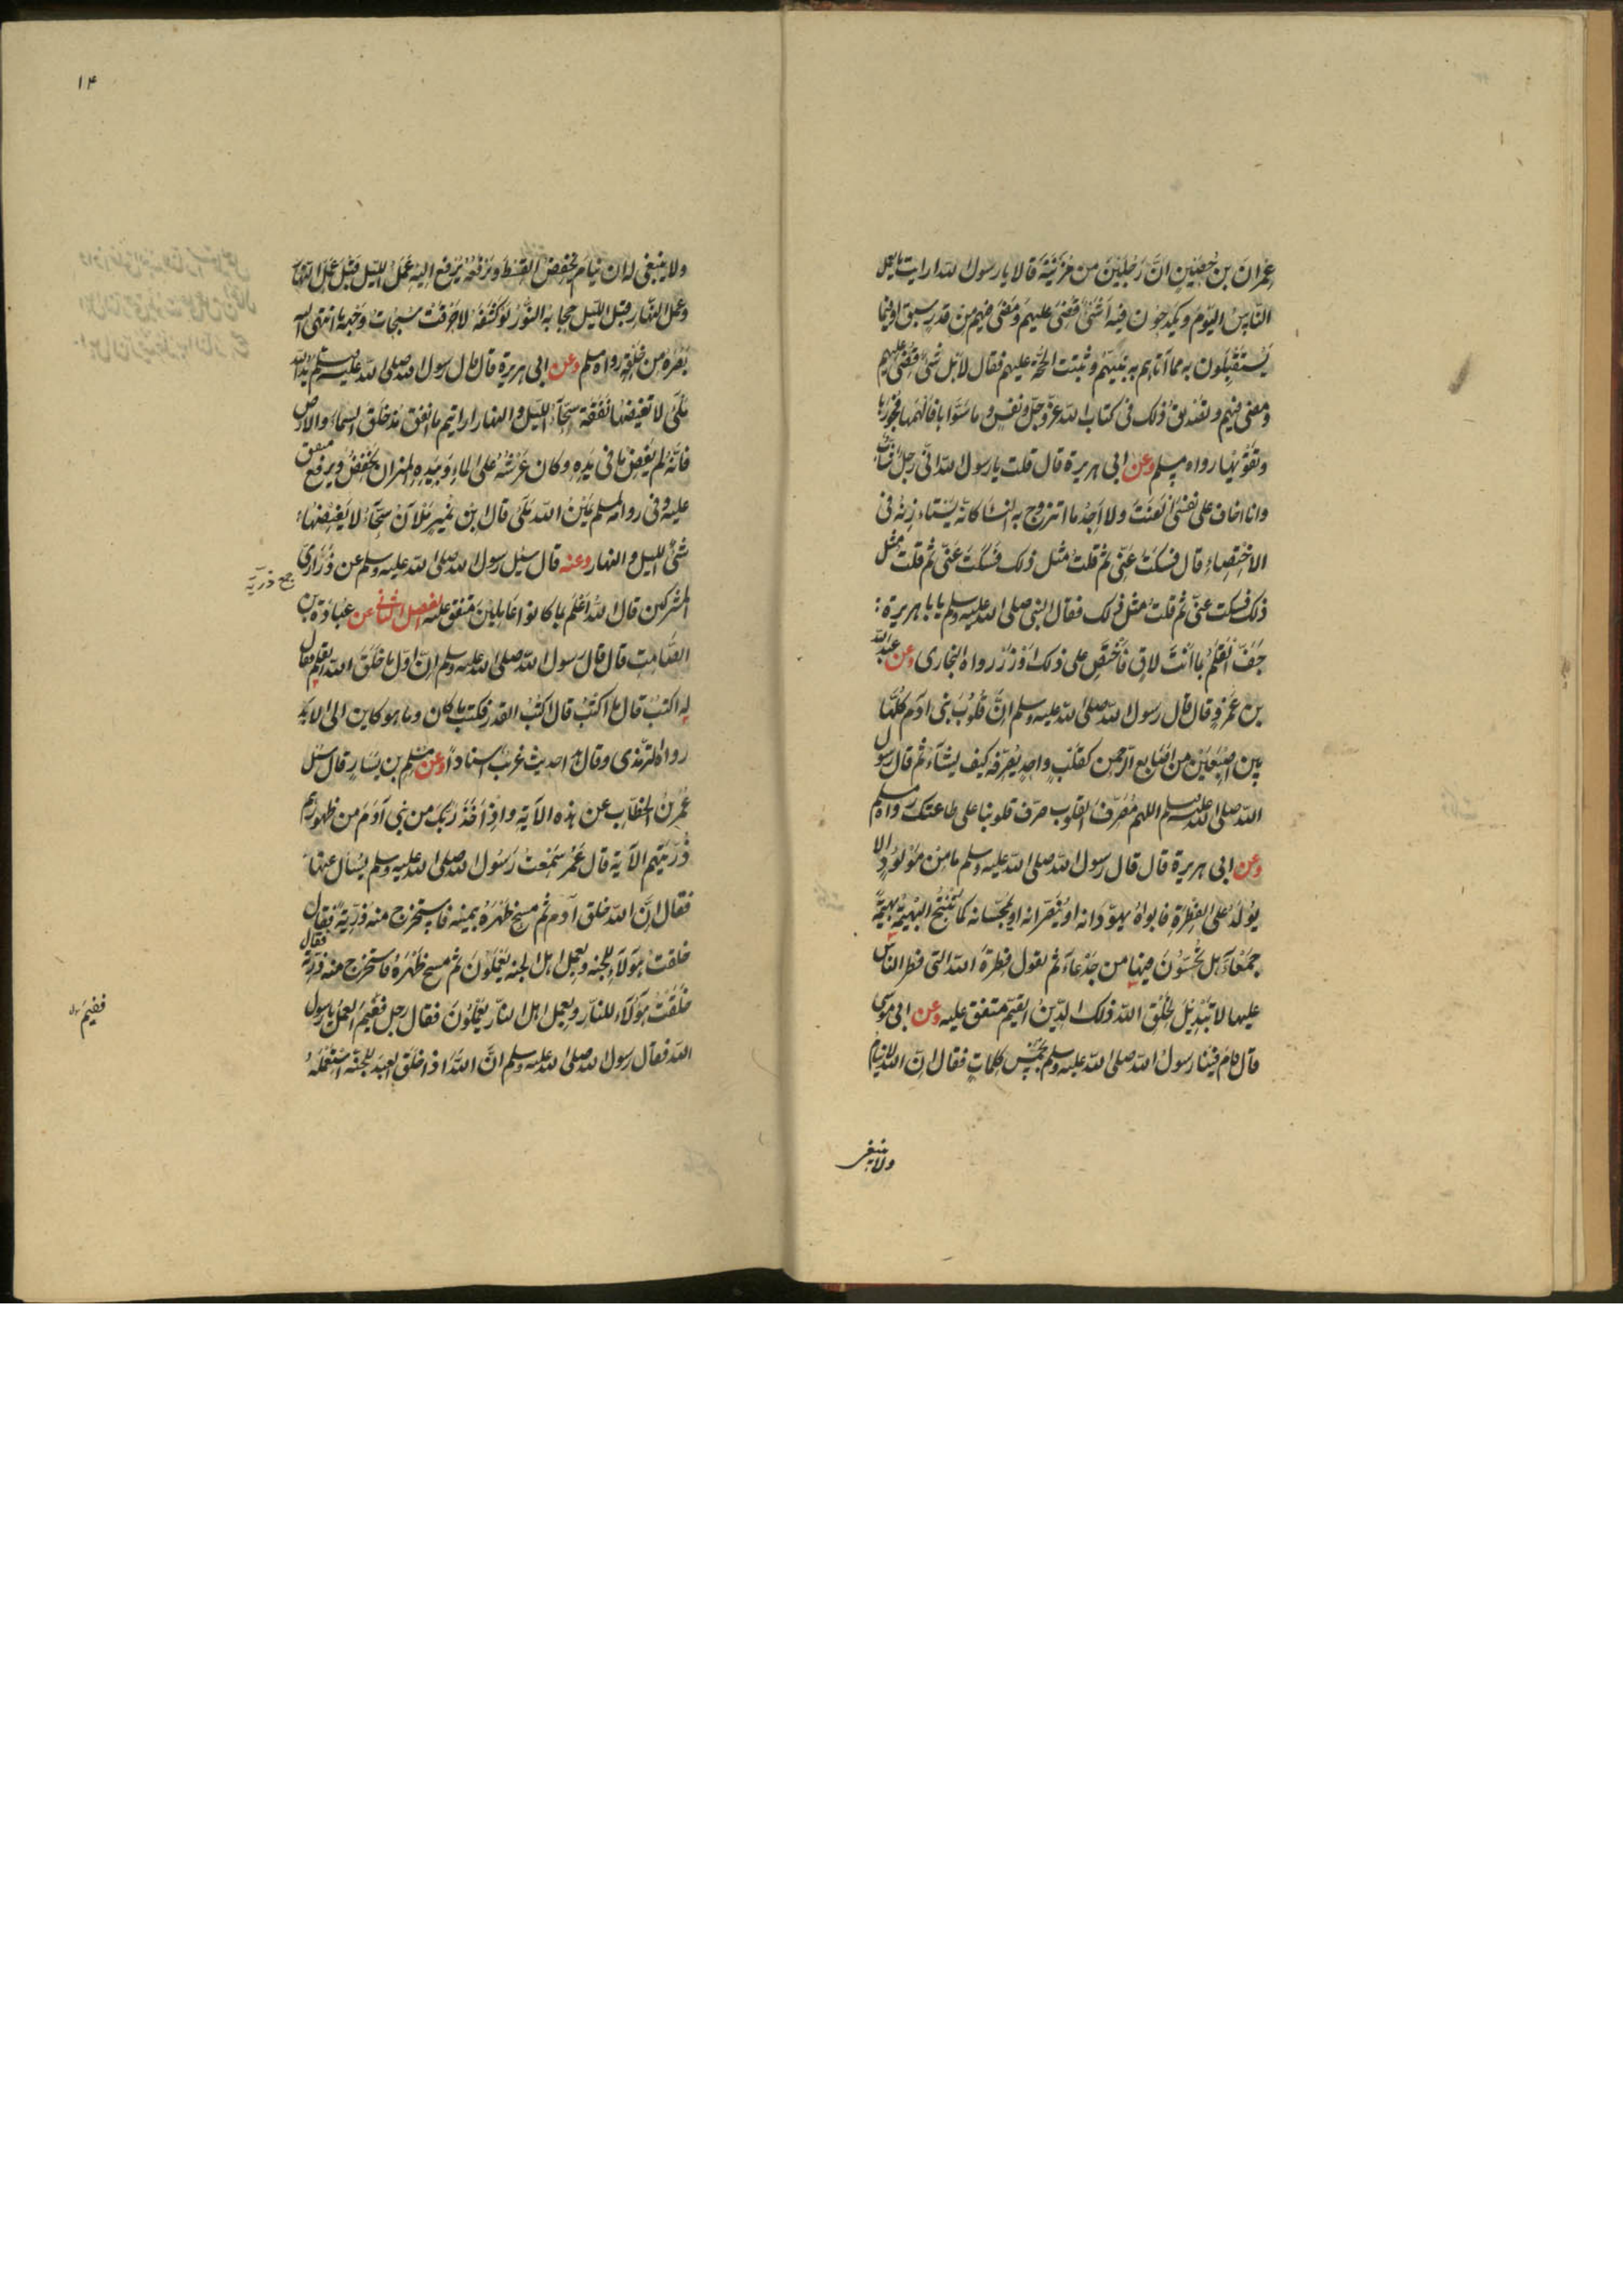 عِمْرانَ بنِ حُصَيْنٍ انَّ رَجُلَيْنِ من مُزَيْنَةَ قالا يا رسول الله ارايت ما يعمل
النّاس اليَوْمَ ويكدَحُون فيه اَشَئٌ قُضِىَ عليهم ومَضَى فيهم من قدر سبق او فيما
يُسْتَقْبِلُون به مما اتاهم به نَبيّهُم وثبتت الحُجّة عليهم فقال لا بل شئٌ قُضِىَ عليهم
ومضى فيهم وتصديقُ ذلك فى كتاب الله عزّ وجلّ ونفس وما سَوّاها فاَلْهَمَها فجورها
وتَقْوٰيها رواه مسلم وعن ابى هريرة قال قلت يا رسول الله انى رجلٌ شابٌّ
وانا اخاف على نفسى العَنَتَ ولا اَجِدُ ما اتزوج به النساء كانّه يَسْتاذِنه فى
الاخْتِصاءِ قال فسكَتَ عنّى ثم قلتُ مثل ذلك فسكتَ عنّى ثم قلت مثل
ذلك فسكت عنّى ثم قلتُ مثل ذلك فقال النبى صلى الله عليه وسلم يا ابا هريرة :
جَفَّ القَلَمُ بما اَنتَ لاقٍ فاختَصِ على ذلك اَوْ ذَرْ رواه البخارى وعن عبد الله
بن عَمْرٍو قال قال رسول الله صلى الله عليه وسلم اِنَّ قُلُوبَ بنى ادم كُلَّها
بين اصْبُعَيْن من اَصَابع الرّحمن كقلبٍ واحدٍ يُصَرِّفه كيف يشآء ثم قال رسول
الله صلى الله عليه وسلم اللهم مُصَرِّفَ القلوب صرّف قلوبنا على طاعتك رواه مسلم
وعن ابى هريرة قال قال رسول الله صلى الله عليه وسلم ما مِن مَوْلُودٍ الا
يُوْلَدُ على الفِطْرَةِ فابواهُ يهوّدَانه او يُنَصّرانه او يمجّسانه كما تُنْتَجُ البَهِيْمَةُ بهيمةً
جَمْعَاءَ هل تُحِسّونَ فيها من جَدْعاءَ ثم يقول فِطْرَةَ الله التى فطر الناس
عليها لا تَبْدِيْلَ لخَلْق الله ذلك الدّينُ القيّم متفق عليه وعن ابى موسى
قال قام فِيْنا رسولُ الله صلى الله عليه وسلم بخَمْسِ كلماتٍ فقال اِنّ الله لا ينام
ولا ينبغى
١٤
ولا ينبغى له ان ينام يَخْفِضُ القِسْطَ ويَرْفَعُهُ يُرفع اليه عَمَلُ الليل قبْلَ عَمَل النّهار
وعمل النّهار قبل الليل حجابه النُّورُ لَو كَشَفَهُ لاحْرَقَتْ سُبُحات وَجْهه ما انتهى اليه
بَصَرُهُ من خَلْقِه رواه مسلم وعن ابى هريرة قال قال رسول الله صلى الله عليه وسلم يدُ الله
مَلْأى لا تَغيضُها نَفَقَة سَحّاءُ الليل والنهار ارايتم ما انفق مُذ خَلَقَ السماءَ والارض
فانّه لم يَغِض ما فى يَدِهِ وكان عَرْشُهُ على الماءِ وبِيَدِهِ الميزان يَخْفِضُ ويرفع متفق
عليه وفى رواية لمسلم يَمِيْنُ الله مَلْأى قال ابن نُمَيرٍ مَلْآنُ سَحّآءُ لا يَغيضُها
شئٌ الليل والنهار وعنه قال سُئِل رسول الله صلى الله عليه وسلم عن ذَرَارِىّ
جمع ذرّيّة
المشركين قال اللهُ اَعْلَمُ بما كانوا عاملينَ متفق عليه الفصل الثانى عن عُبادَة بن
الصّامت قال قال رسول الله صلى الله عليه وسلم اِنّ اوّل ما خَلَقَ الله القلم فقال
له اكتبْ قال ما اكتُبُ قال اكتُب القدر فكتب ما كان وما هو كاين الى الابد
رواه الترمذى وقال هذا حديث غريبٌ اسنادًا وعن مُسْلِم بن يَسَارٍ قال سئل
عُمَرُ بن الخطّاب عن هذه الآية واِذْ اَخَذَ رَبُّكَ من بنى آدَمَ من ظهورهم
ذُرّيَّتهم الآية قال عُمَرُ سَمِعْتُ رَسُولَ الله صلى الله عليه وسلم يُسْأل عنها
فقال اِنّ الله خلق آدم ثم مسح ظَهْرَهُ بيمينه فاستخرج منه ذُرّيّةً فقال
خلقت هؤلاء للجنه وبعمل اهل الجنه يَعْمَلُونَ ثم مسح ظَهْرَهُ فاستخرج منه ذرّيّة فقال
خَلَقْتُ هؤلاء للنّارِ وبعمل اهل النّار يعمَلُونَ فقال رجل ففيمَ العملُ يا رسول
ففيمَ
الله فقال رسول الله صلى الله عليه وسلم انّ اللهَ اذا خلق العبد للجنّة استَعْمَلَهُ